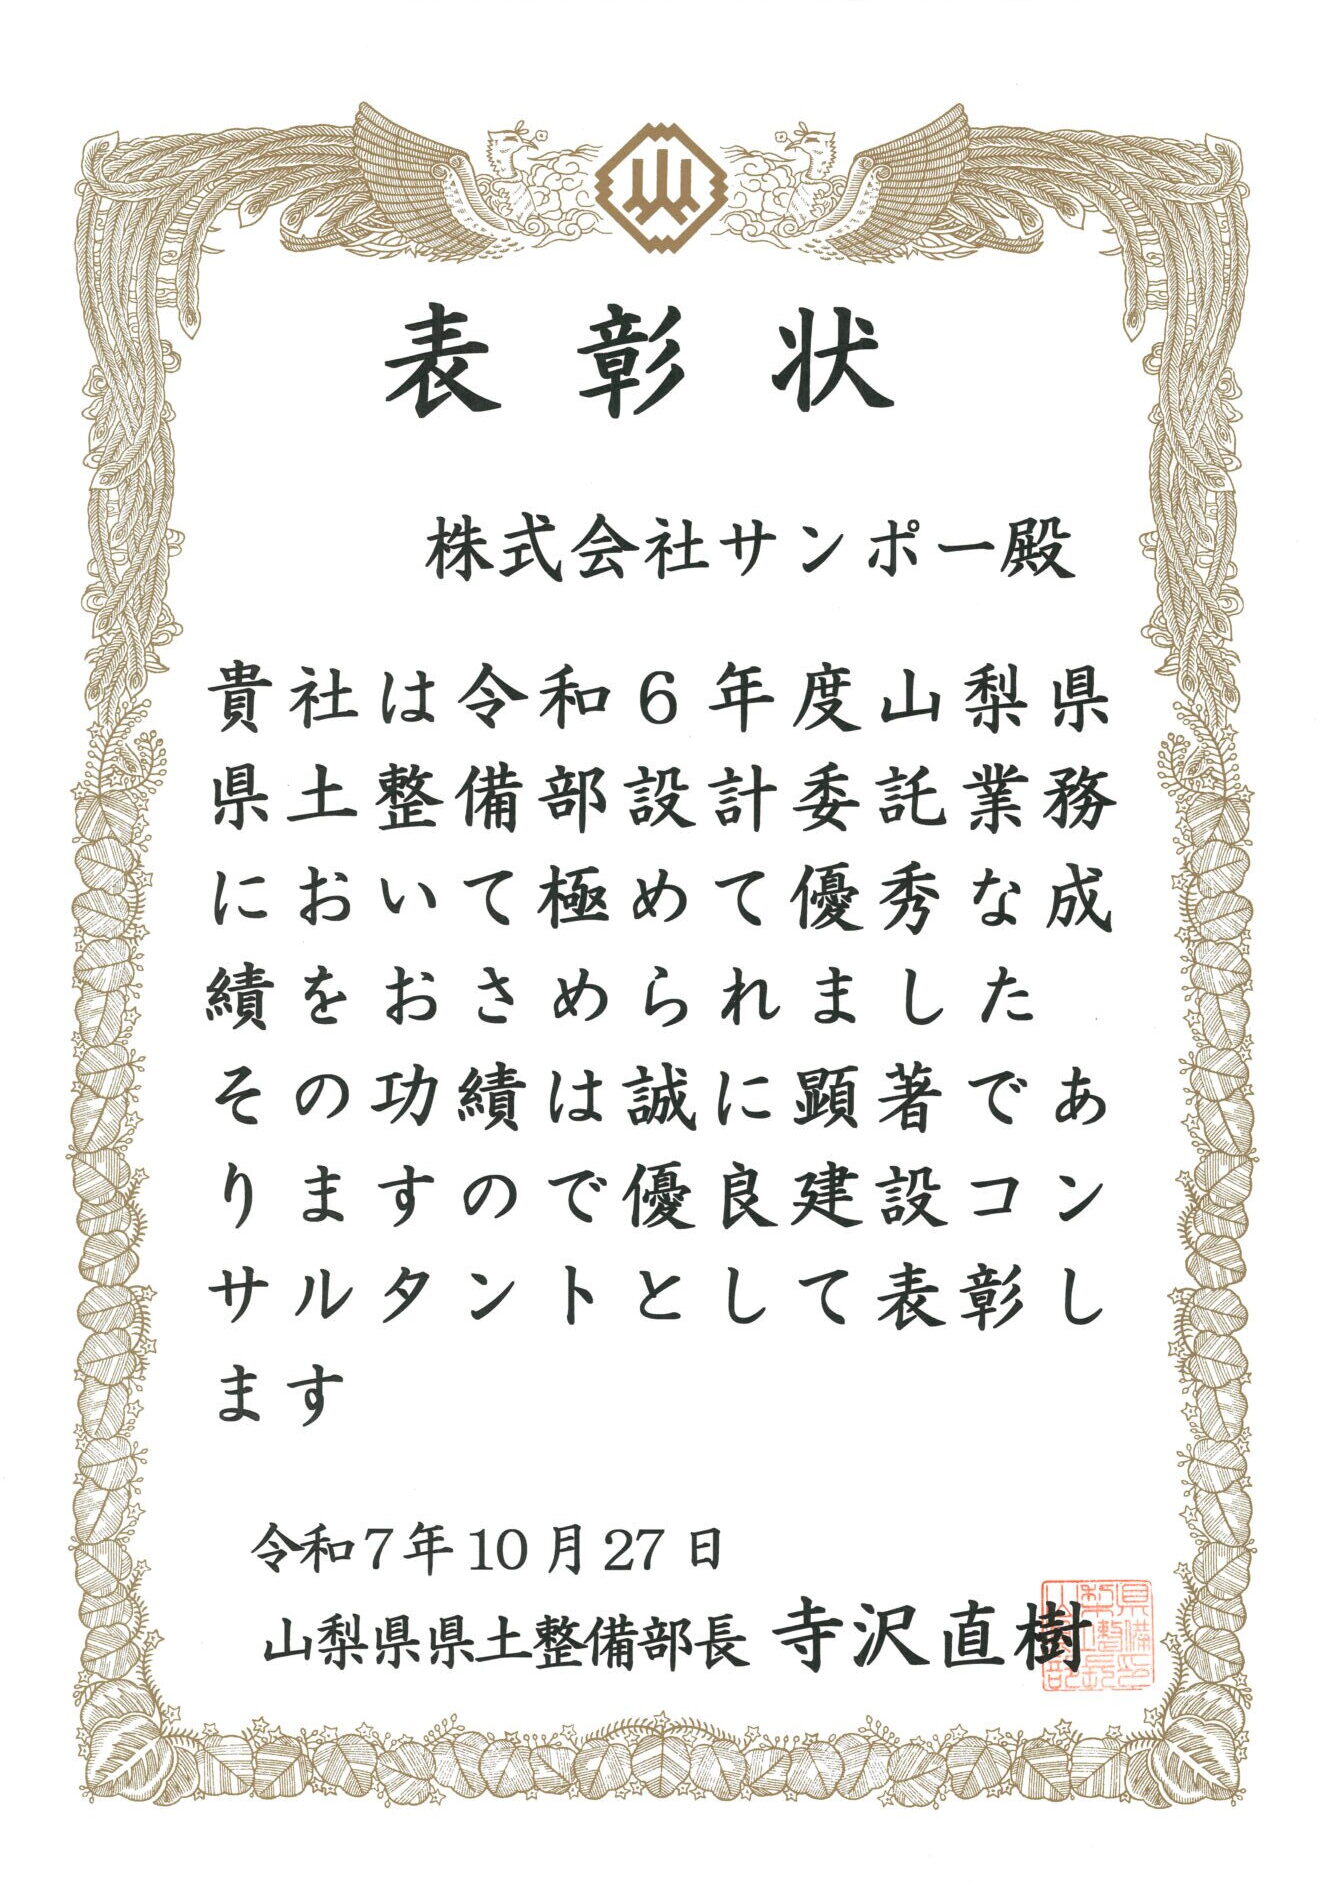 表彰状
株式会社サンポー殿
貴社は令和6年度山梨県
県土整備部設計委託業務
において極めて優秀な成
績をおさめられました
その功績は誠に顕著であ
りますので優良建設コン
サルタントとして表彰し
ます
令和7年10月27日
山梨県県土整備部長 寺沢直樹